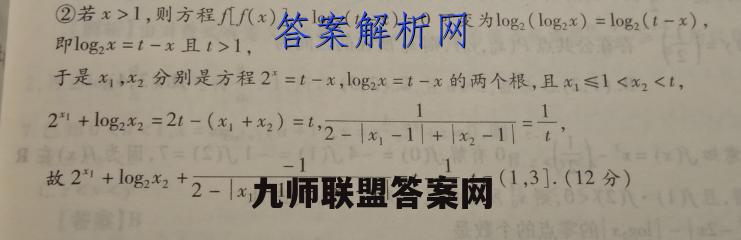 ②若 x>1,则方程 f[f(x) 变为log₂(log₂x)=log₂(t-x),
答案解析网
即log₂x=t-x 且 t>1,
于是 x₁,x₂ 分别是方程 2ˣ=t-x,log₂x=t-x 的两个根,且 x₁≤1<x₂<t,
2^{x₁}+log₂x₂=2t-(x₁+x₂)=t, 1/(2-|x₁-1|+|x₂-1|)=1/t,
故 2^{x₁}+log₂x₂+ -1/(2-|x₁ (1,3].(12 分)
九师联盟答案网